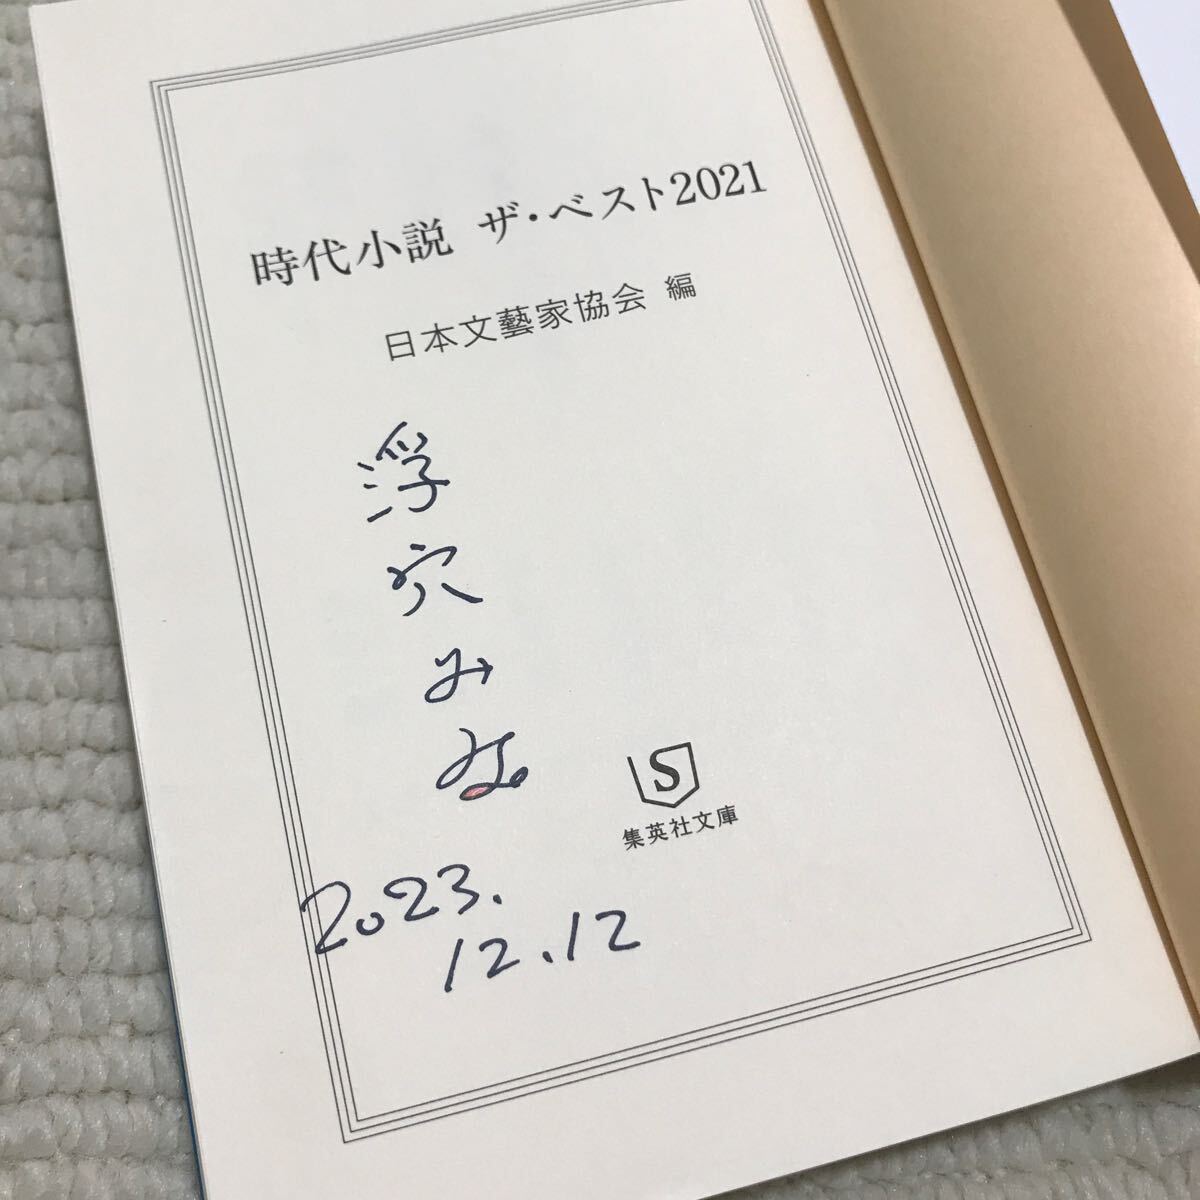 時代小説 ザ・ベスト2021
日本文藝家協会 編
浮穴みみ
2023.
12.12
S
集英社文庫